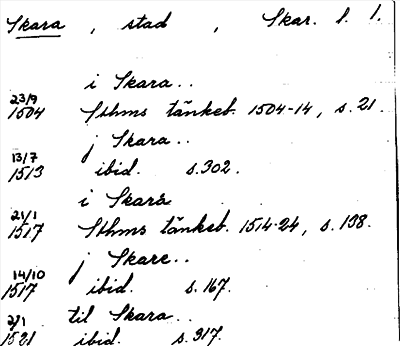 Skara , stad , Skar. l. 1.
i Skara..
23/9
1504 Sthms tänkeb. 1504-14, s.21.
j Skara..
13/7
1513 ibid. s.302.
i Skara
21/1
1517 Sthms tänkeb. 1514-24, s.138.
j Skare..
14/10
1517 ibid. s.167.
til Skara..
2/1
1521 ibid. s.317.